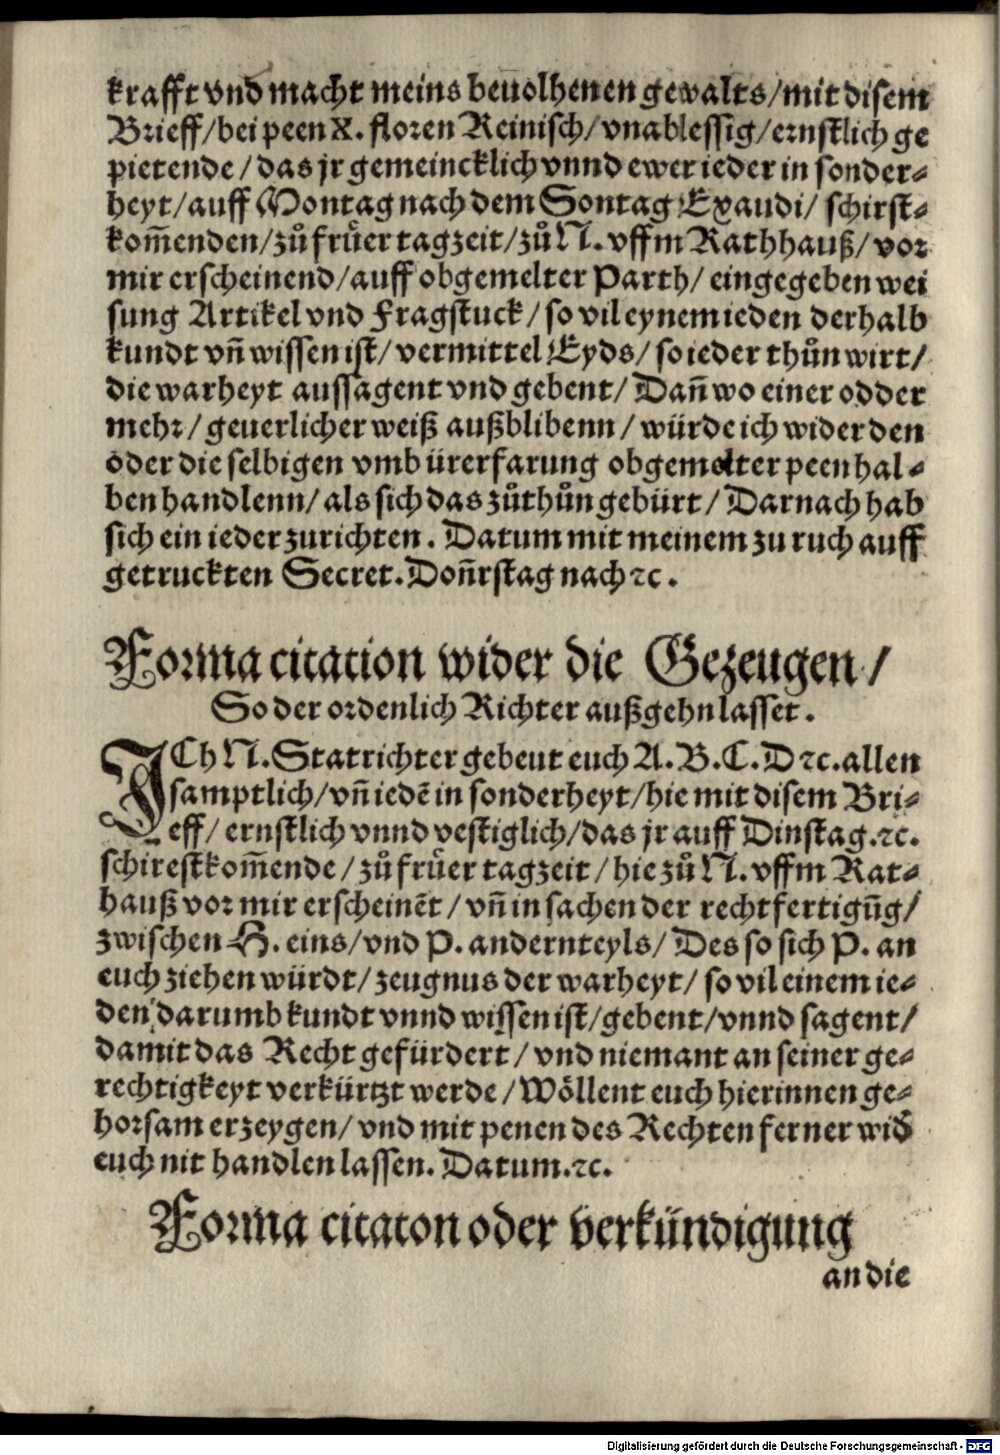 krafft vnd macht meins beuolhenen gewalts/mit disem
Brieff/bei peen X. floren Reinisch/vnablessig/ernstlich ge
pietende/das jr gemeincklich vnnd ewer ieder in sonder-
heyt/auff Montag nach dem Sontag Exaudi/ schirst-
kom̃enden/zů frůer tagzeit/zů N. vffm Rathhauß/vor
mir erscheinend/auff obgemelter Parth/ eingegeben wei
sung Artikel vnd Fragstuck/so vil eynem ieden derhalb
kundt vñ wissen ist/vermittel Eyds/so ieder thůn wirt/
die warheyt aussagent vnd gebent/ Dañ wo einer odder
mehr/geuerlicher weiß außblibenn/würde ich wider den
oder die selbigen vmb ürerfarung obgemelter peen hal-
ben handlenn/als sich das zůthůn gebürt/Darnach hab
sich ein ieder zurichten. Datum mit meinem zu ruch auff
getruckten Secret. Doñrstag nach ꝛc.
Forma citation wider die Gezeugen/
So der ordenlich Richter außgehn lasset.
ICh N. Statrichter gebeut euch A. B. C. D ꝛc. allen
samptlich/vñ iedẽ in sonderheyt/hie mit disem Bri-
eff/ ernstlich vnnd vestiglich/das jr auff Dinstag.ꝛc.
schirestkom̃ende/zů frůer tagzeit/hie zů N. vffm Rat-
hauß vor mir erscheinẽt/vñ in sachen der rechtfertigũg/
zwischen H. eins/vnd P. andernteyls/ Des so sich P. an
euch ziehen würdt/zeugnus der warheyt/ so vil einem ie-
den darumb kundt vnnd wissen ist/gebent/vnnd sagent/
damit das Recht gefürdert/vnd niemant an seiner ge-
rechtigkeyt verkürtzt werde/Wöllent euch hierinnen ge-
horsam erzeygen/vnd mit penen des Rechten ferner wid̃
euch nit handlen lassen. Datum.ꝛc.
Forma citaton oder verkündigung
an die
Digitalisierung gefördert durch die Deutsche Forschungsgemeinschaft - DFG